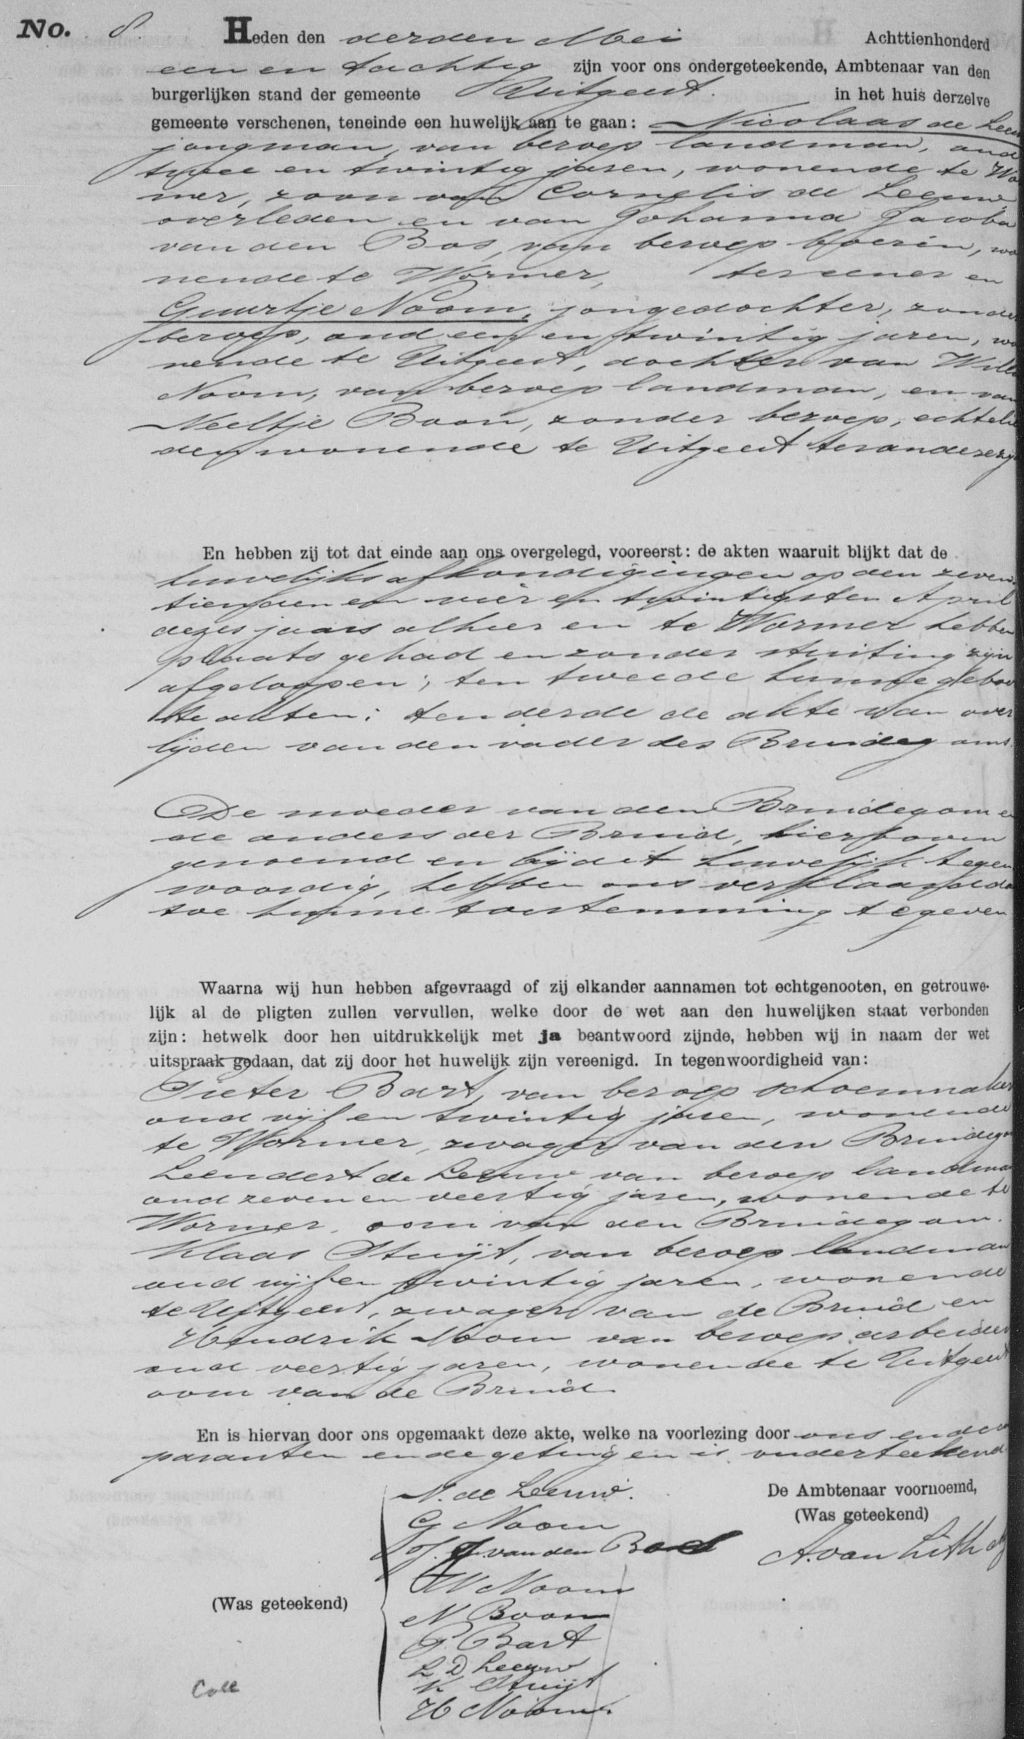 No. 8. Heden den derden Mei Achttienhonderd
een en tachtig zijn voor ons ondergeteekende, Ambtenaar van den
burgerlijken stand der gemeente Uitgeest. in het huis derzelve
gemeente verschenen, teneinde een huwelijk aan te gaan: Nicolaas de Leeuw
jongman, van beroep landman, oud
twee en twintig jaren, wonende te Wor
mer, zoon van Cornelis de Leeuw
overleden en van Johanna Jacoba
van den Bos, van beroep boerin, wo
nende te Wormer, ter eener en
Guurtje Noom, jongedochter, zonder
beroep, oud een en twintig jaren, wo
nende te Uitgeest, dochter van Willem
Noom, van beroep landman, en van
Neeltje Boon, zonder beroep, echtelie
den wonende te Uitgeest ter anderezij
En hebben zij tot dat einde aan ons overgelegd, vooreerst: de akten waaruit blijkt dat de
huwelijks afkondigingen op den zeven
tienden en vier en twintigsten April
dezes jaars alhier en te Wormer hebben
plaats gehad en zonder stuiting zijn
afgeloopen; ten tweede hunne geboor
te akten; ten derde de akte van over
lijden van den vader des Bruidegoms.
De moeder van den Bruidegom en
de ouders der Bruid, hierboven
genoemd en bij dit huwelijk tegen
woordig, hebben ons verklaard daar
toe hunne toestemming te geven
Waarna wij hun hebben afgevraagd of zij elkander aannamen tot echtgenooten, en getrouwe-
lijk al de pligten zullen vervullen, welke door de wet aan den huwelijken staat verbonden
zijn: hetwelk door hen uitdrukkelijk met ja beantwoord zijnde, hebben wij in naam der wet
uitspraak gedaan, dat zij door het huwelijk zijn vereenigd. In tegenwoordigheid van:
Pieter Bart, van beroep schoenmaker
oud vijf en twintig jaren, wonende
te Wormer, zwager van den Bruidegom
Leendert de Leeuw van beroep landman
oud zeven en veertig jaren, wonende te
Wormer, oom van den Bruidegom.
Klaas Stuijt, van beroep landman
oud vijf en twintig jaren, wonende
te Uitgeest, zwager van de Bruid en
Hendrik Noom van beroep arbeider
oud veertig jaren, wonende te Uitgeest
oom van de Bruid.
En is hiervan door ons opgemaakt deze akte, welke na voorlezing door ons en de com
paranten en de getuigen is onderteekend
De Ambtenaar voornoemd,
(Was geteekend)
A. van Lith
(Was geteekend)
N. de Leeuw.
G Noom
J. van den Bos
W Noom
N Boon
P. Bart
L. D. Leeuw
K. Stuijt
H Noom
Coll